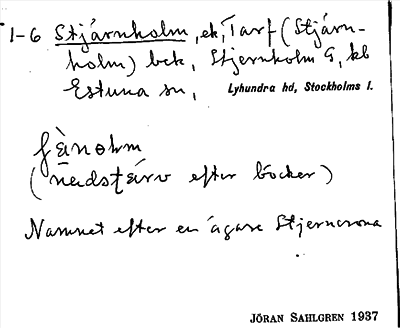 1-6 Stjärnholm, ek, Tarf (Stjärn-
holm) bek, Stjernholm G, kb
Estuna sn, Lyhundra hd, Stockholms l.
(nedskärv efter böcker)
Namnet efter en ägare Stjerncrona
JÖRAN SAHLGREN 1937